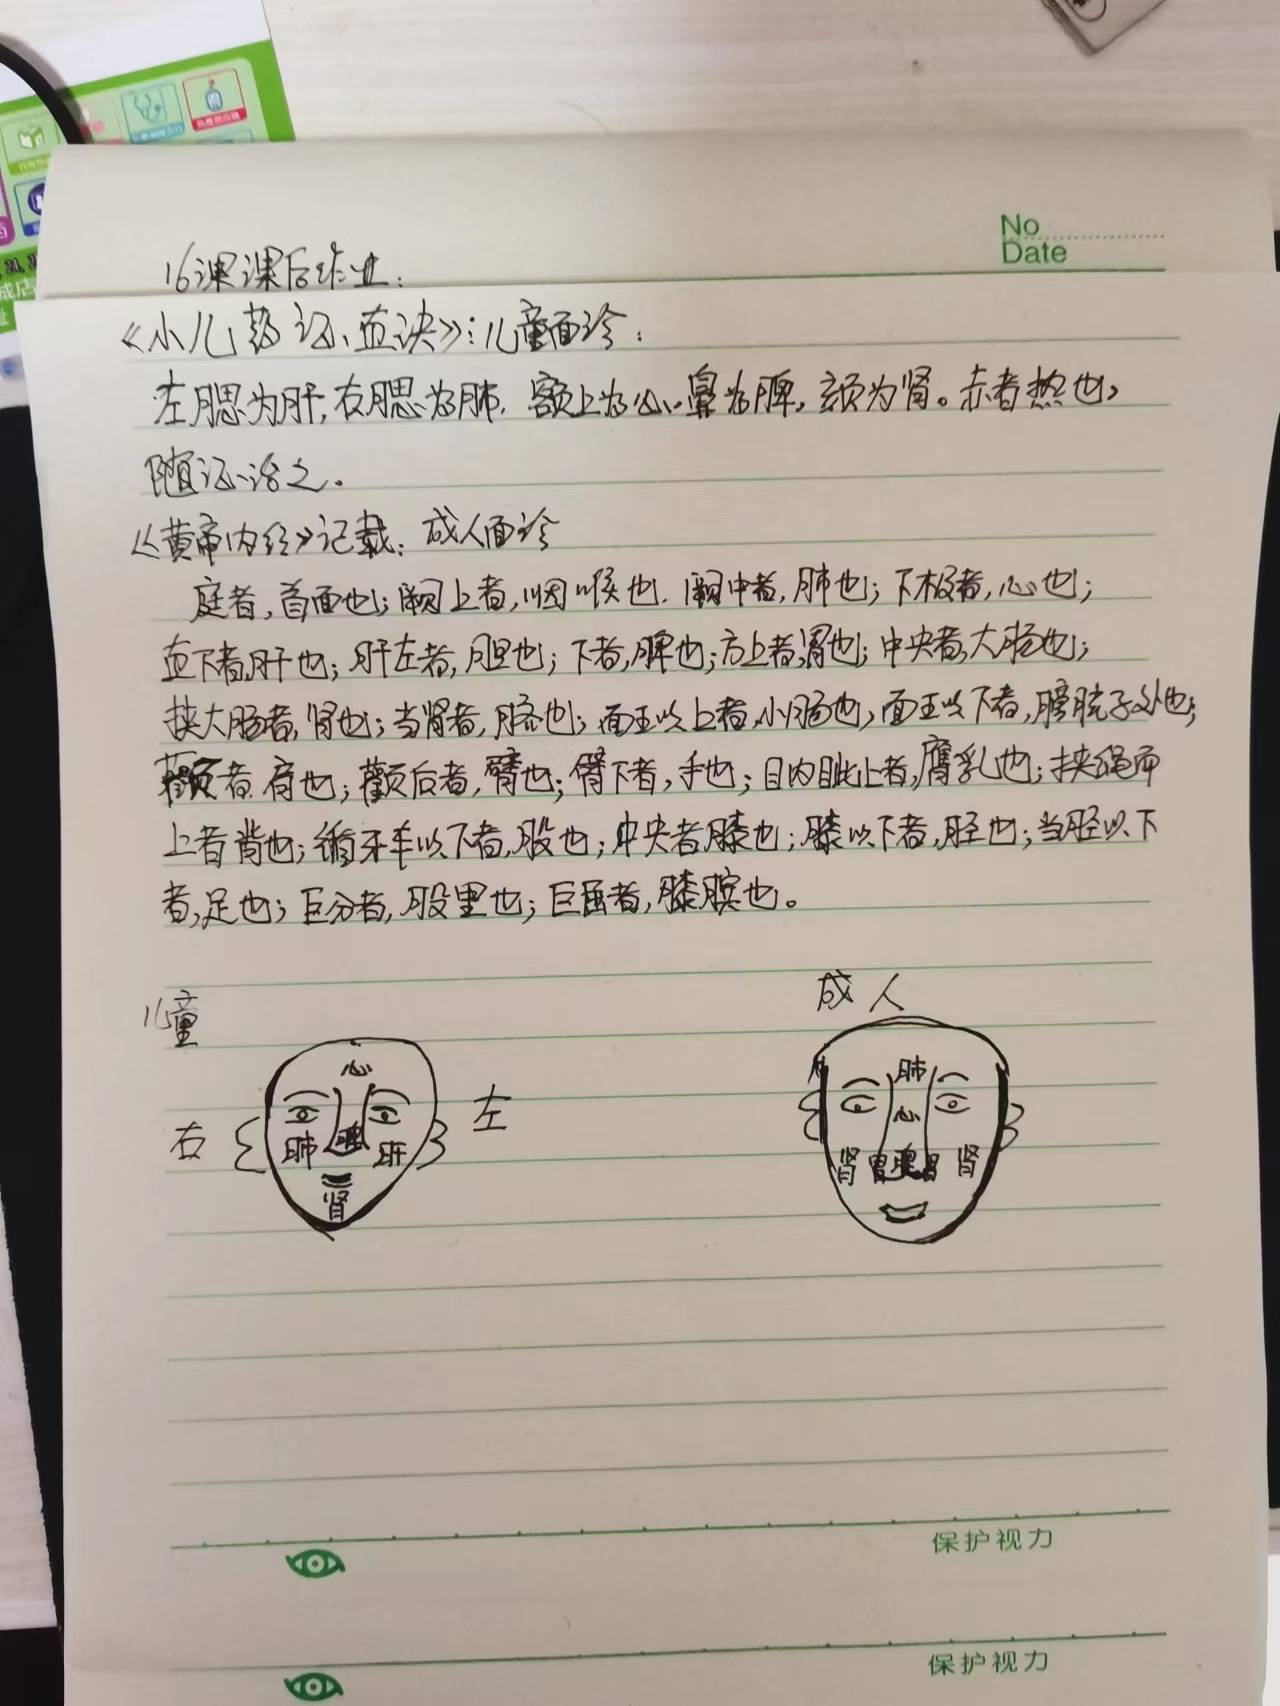 No
Date
16课课后作业:
《小儿药证直诀》:儿童面诊:
左腮为肝,右腮为肺,额上为心,鼻为脾,颏为肾。赤者热也,
随证治之。
《黄帝内经》记载:成人面诊
庭者,首面也;阙上者,咽喉也.阙中者,肺也;下极者,心也;
直下者,肝也;肝左者,胆也;下者,脾也;方上者,胃也;中央者,大肠也;
挟大肠者,肾也;当肾者,脐也;面王以上者,小肠也,面王以下者,膀胱子处也;
颧者.肩也;颧后者,臂也;臂下者,手也;目内眦上者,膺乳也;挟绳而
上者背也;循牙车以下者,股也;中央者膝也;膝以下者,胫也;当胫以下
者,足也;巨分者,股里也;巨屈者,膝膑也。
儿童
成人
心
右
左
肺
脾
肝
肾
肺
心
肾 胃 脾 胃 肾
保护视力
保护视力